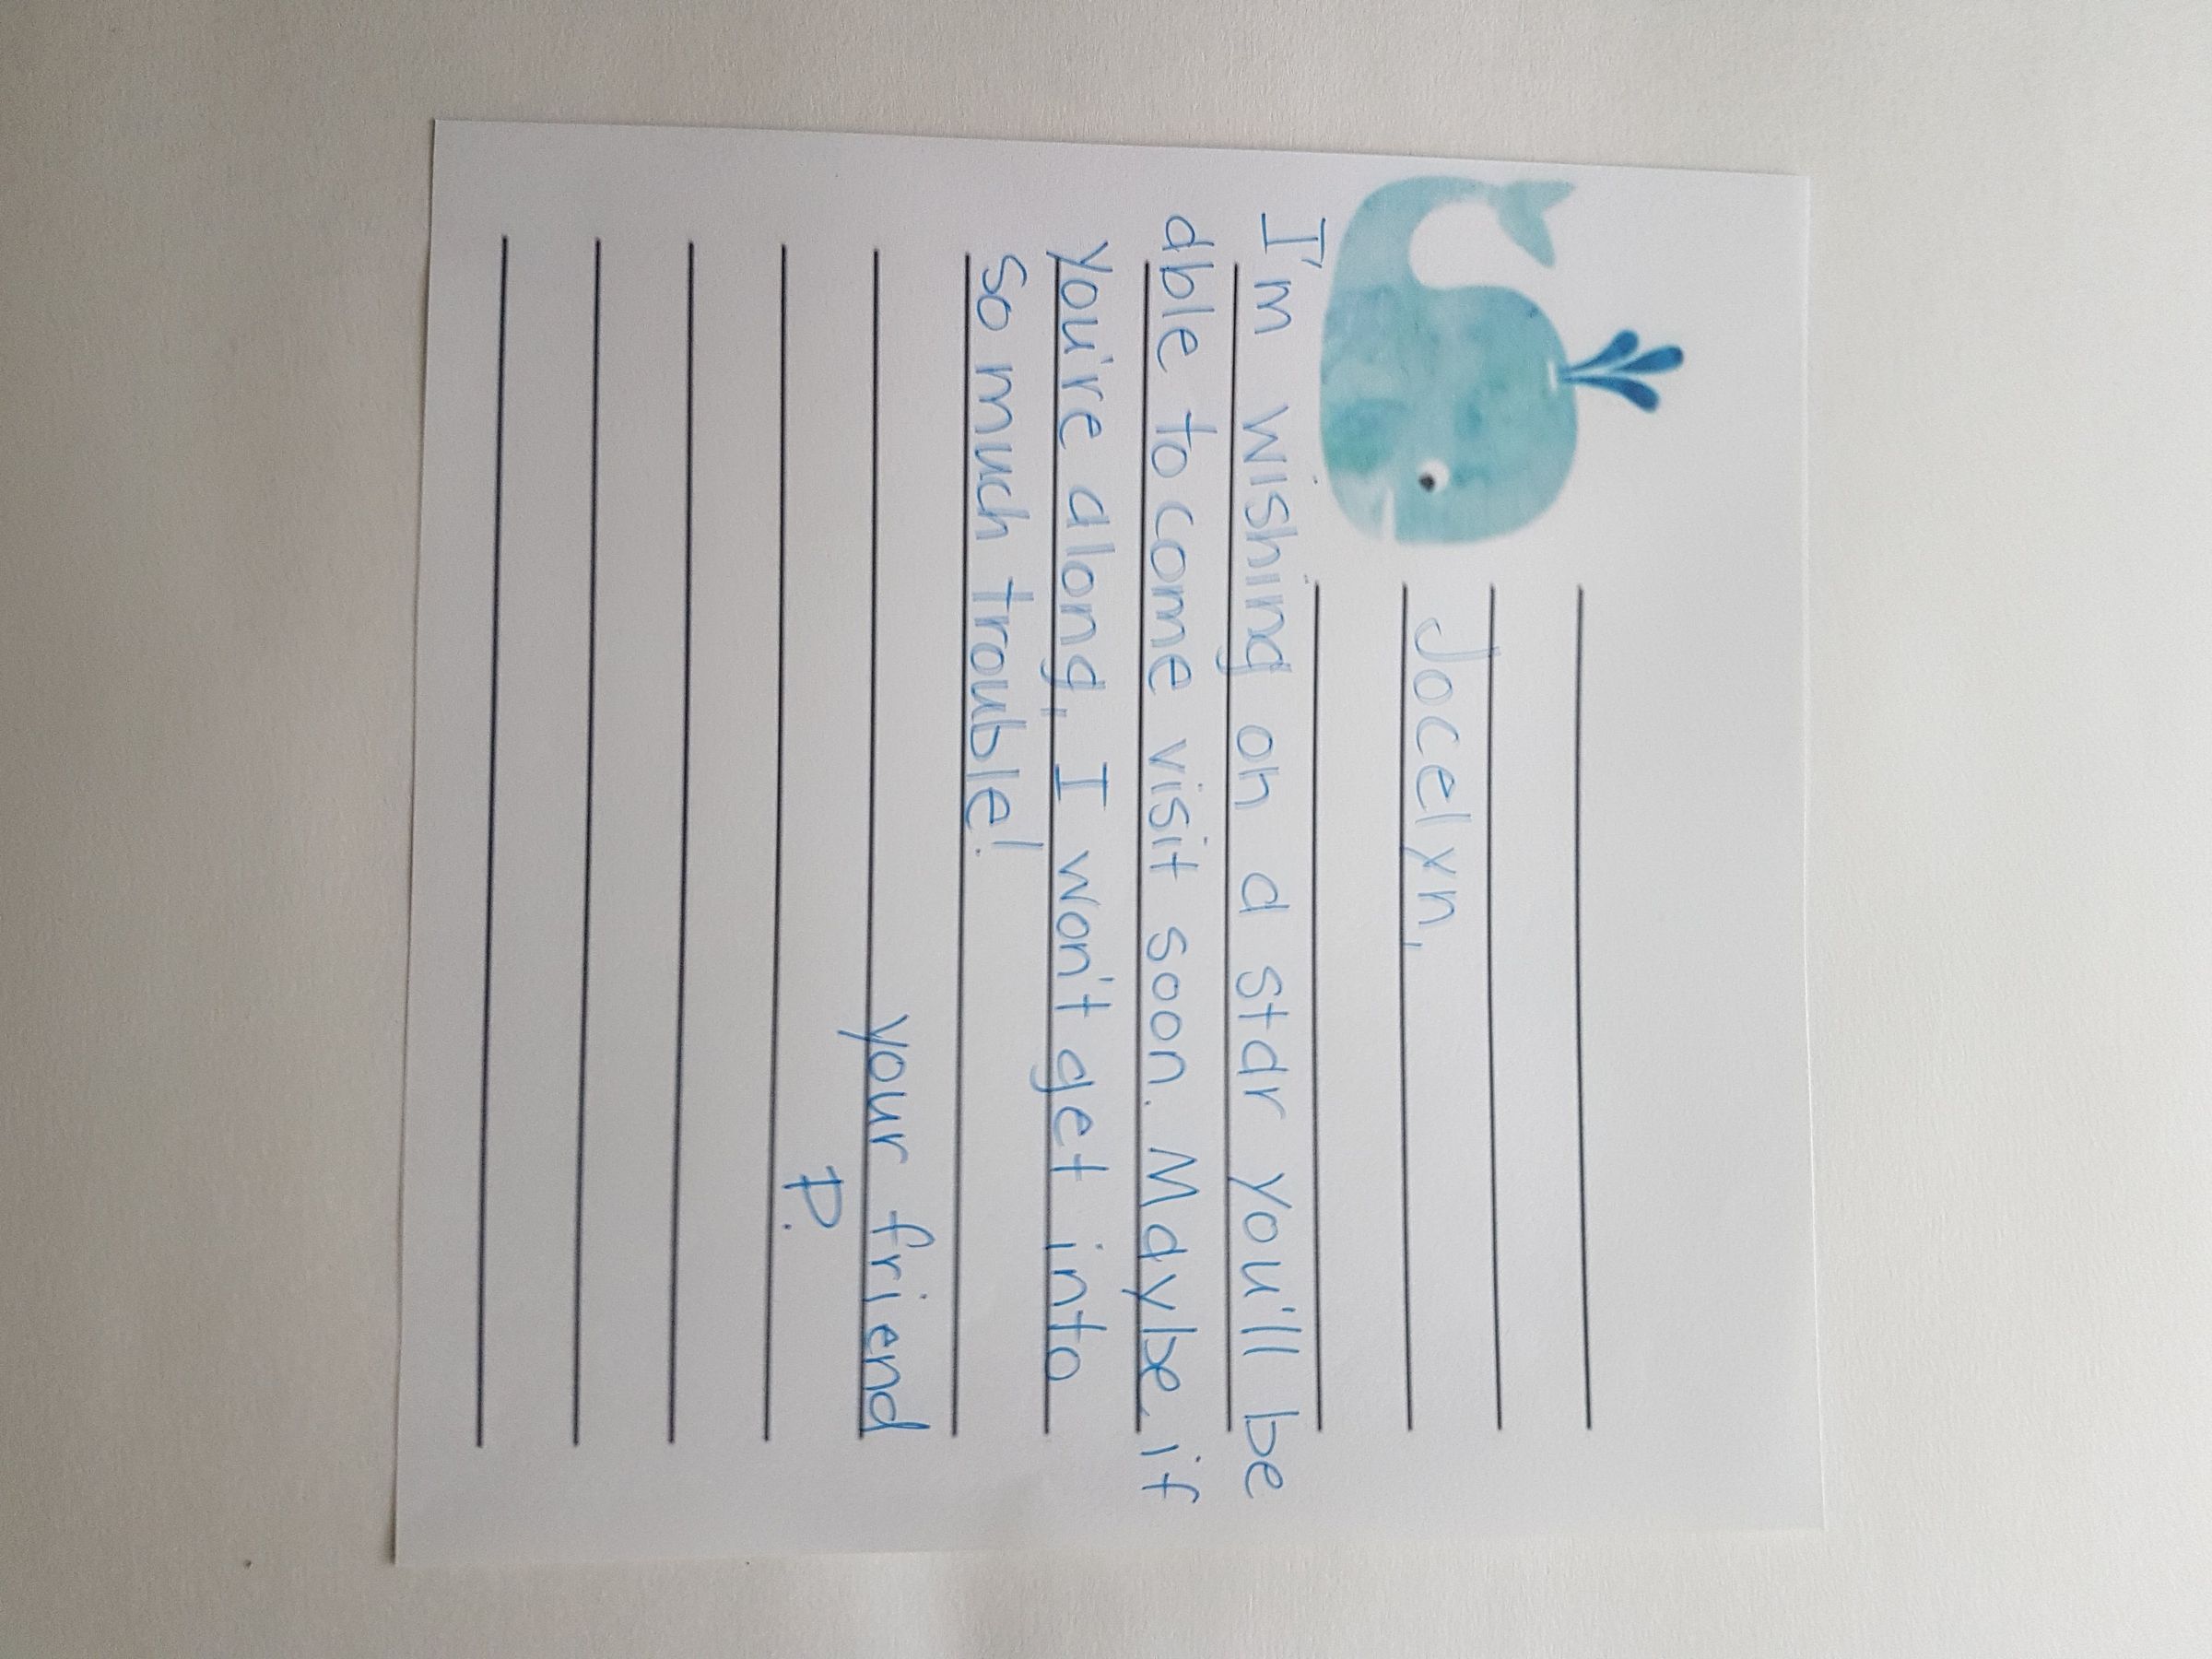 Jocelyn,
I'm wishing on a star you'll be
able to come visit soon. Maybe if
you're along, I won't get into
so much trouble!
your friend
P.